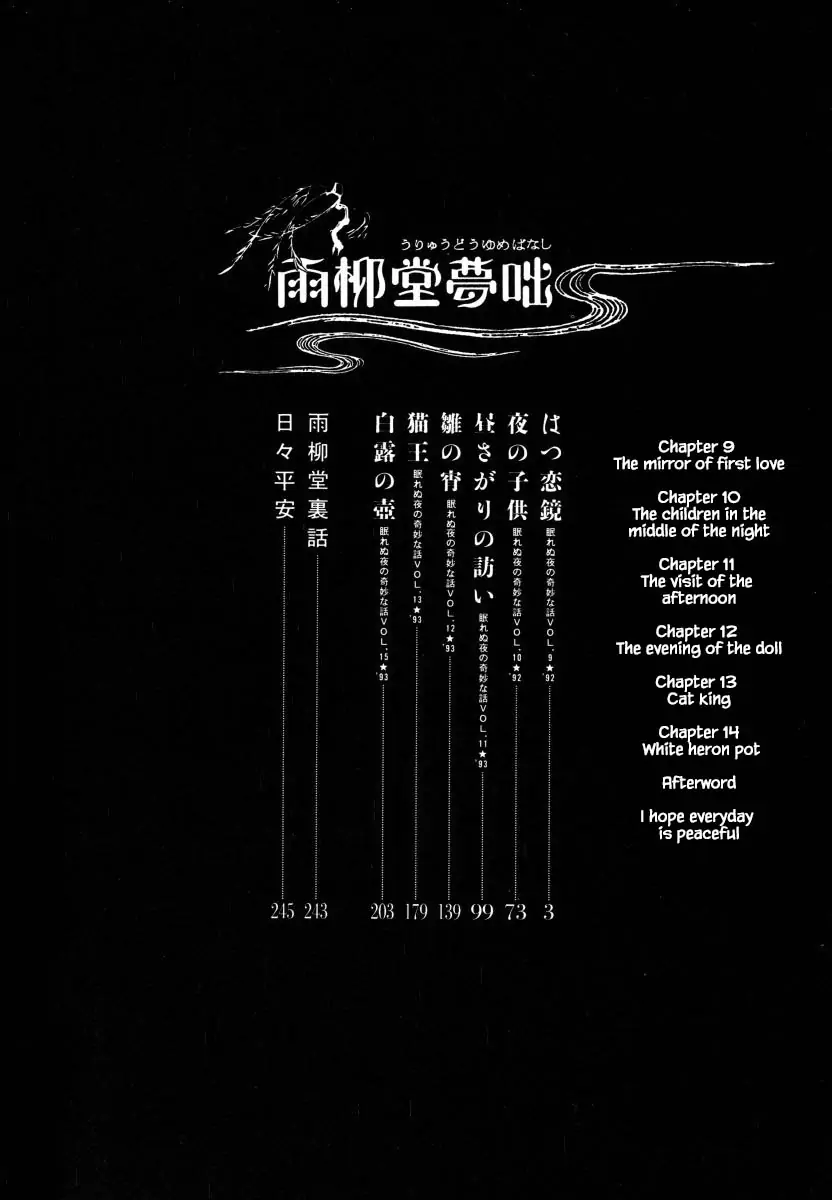 うりゅうどうゆめばなし
雨柳堂夢咄
はつ恋鏡 眠れぬ夜の奇妙な話VOL.9★'92 3
夜の子供 眠れぬ夜の奇妙な話VOL.10★'92 73
昼さがりの訪い 眠れぬ夜の奇妙な話VOL.11★'93 99
雛の宵 眠れぬ夜の奇妙な話VOL.12★'93 139
猫王 眠れぬ夜の奇妙な話VOL.13★'93 179
白露の壺 眠れぬ夜の奇妙な話VOL.15★'93 203
雨柳堂裏話 243
日々平安 245
Chapter 9
The mirror of first love
Chapter 10
The children in the
middle of the night
Chapter 11
The visit of the
afternoon
Chapter 12
The evening of the doll
Chapter 13
Cat king
Chapter 14
White heron pot
Afterword
I hope everyday
is peaceful